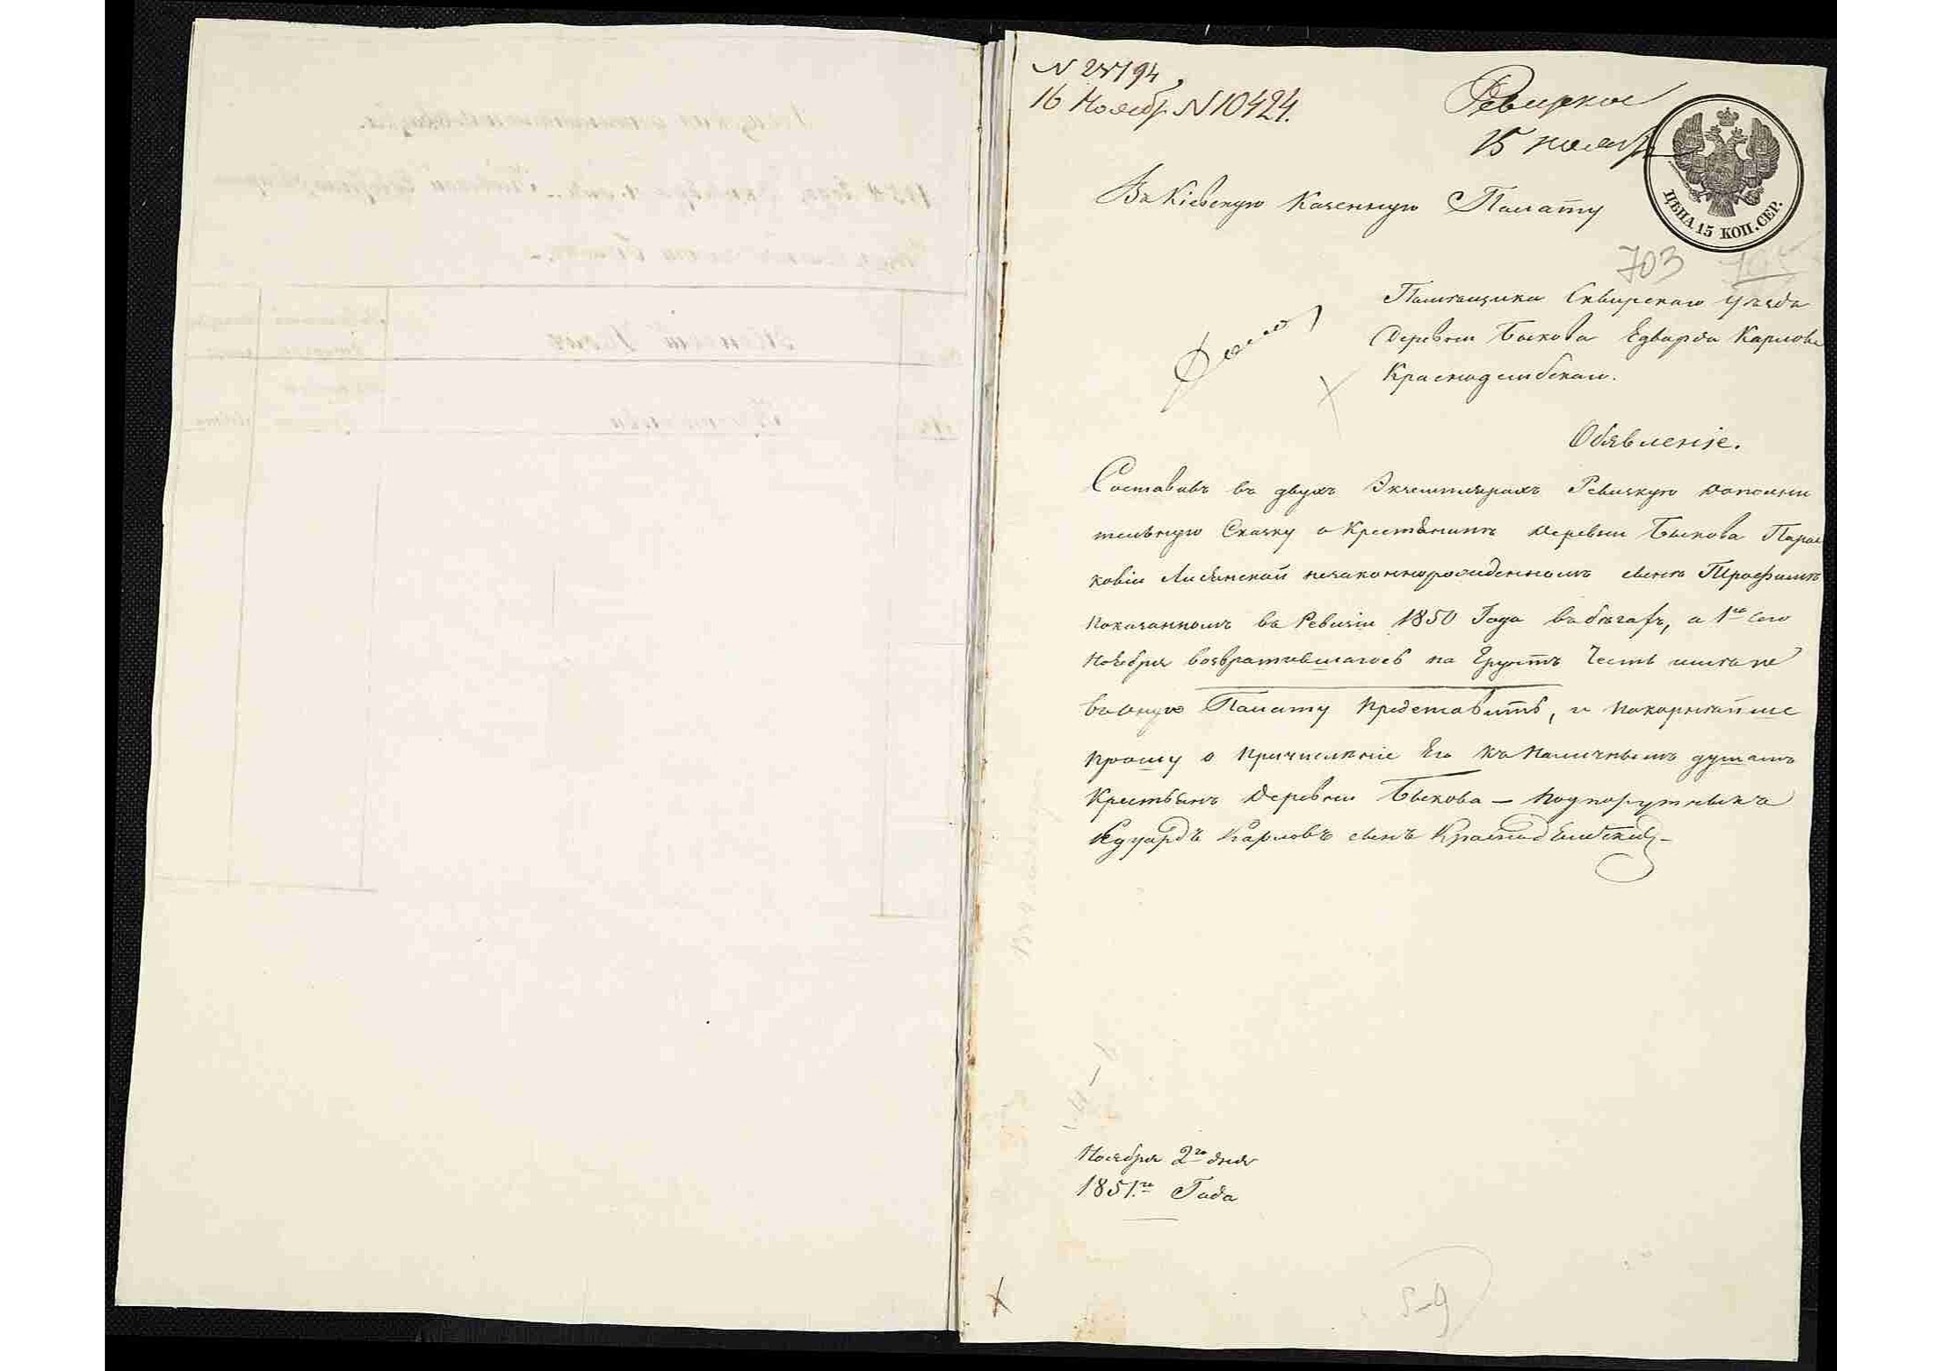 16 Ноябр N 10424.
Ревизкое
15 нояб
ЦѢНА 15 КОП. СЕР.
Въ Кіевскую Казенную Палату
703
Помѣщика Сквирскаго уѣзда
Деревни Быкова Едварда Карлова
Краснодембскаго.
Обявленіе.
Составивъ въ двухъ Экземплярахъ Ревизкую дополни
тельную Сказку о Крестьянинѣ деревни Быкова Парас
ковіи Лисянской незаконнорожденномъ сынѣ Трофимѣ
показанномъ въ Ревизіи 1850 Года въ бѣгахъ, а 1го сего
Ноября возвратившагось на Грунтъ Честь имѣю
въ оную Палату Представить, и покорнѣйше
прошу о Причисленіе Его къ Наличнымъ душамъ
Крестьянъ Деревни Быкова – подпорутчикъ
Едуардъ Карловъ сынъ Краснодембскій
Ноября 2го дня
1851го Года
5-9